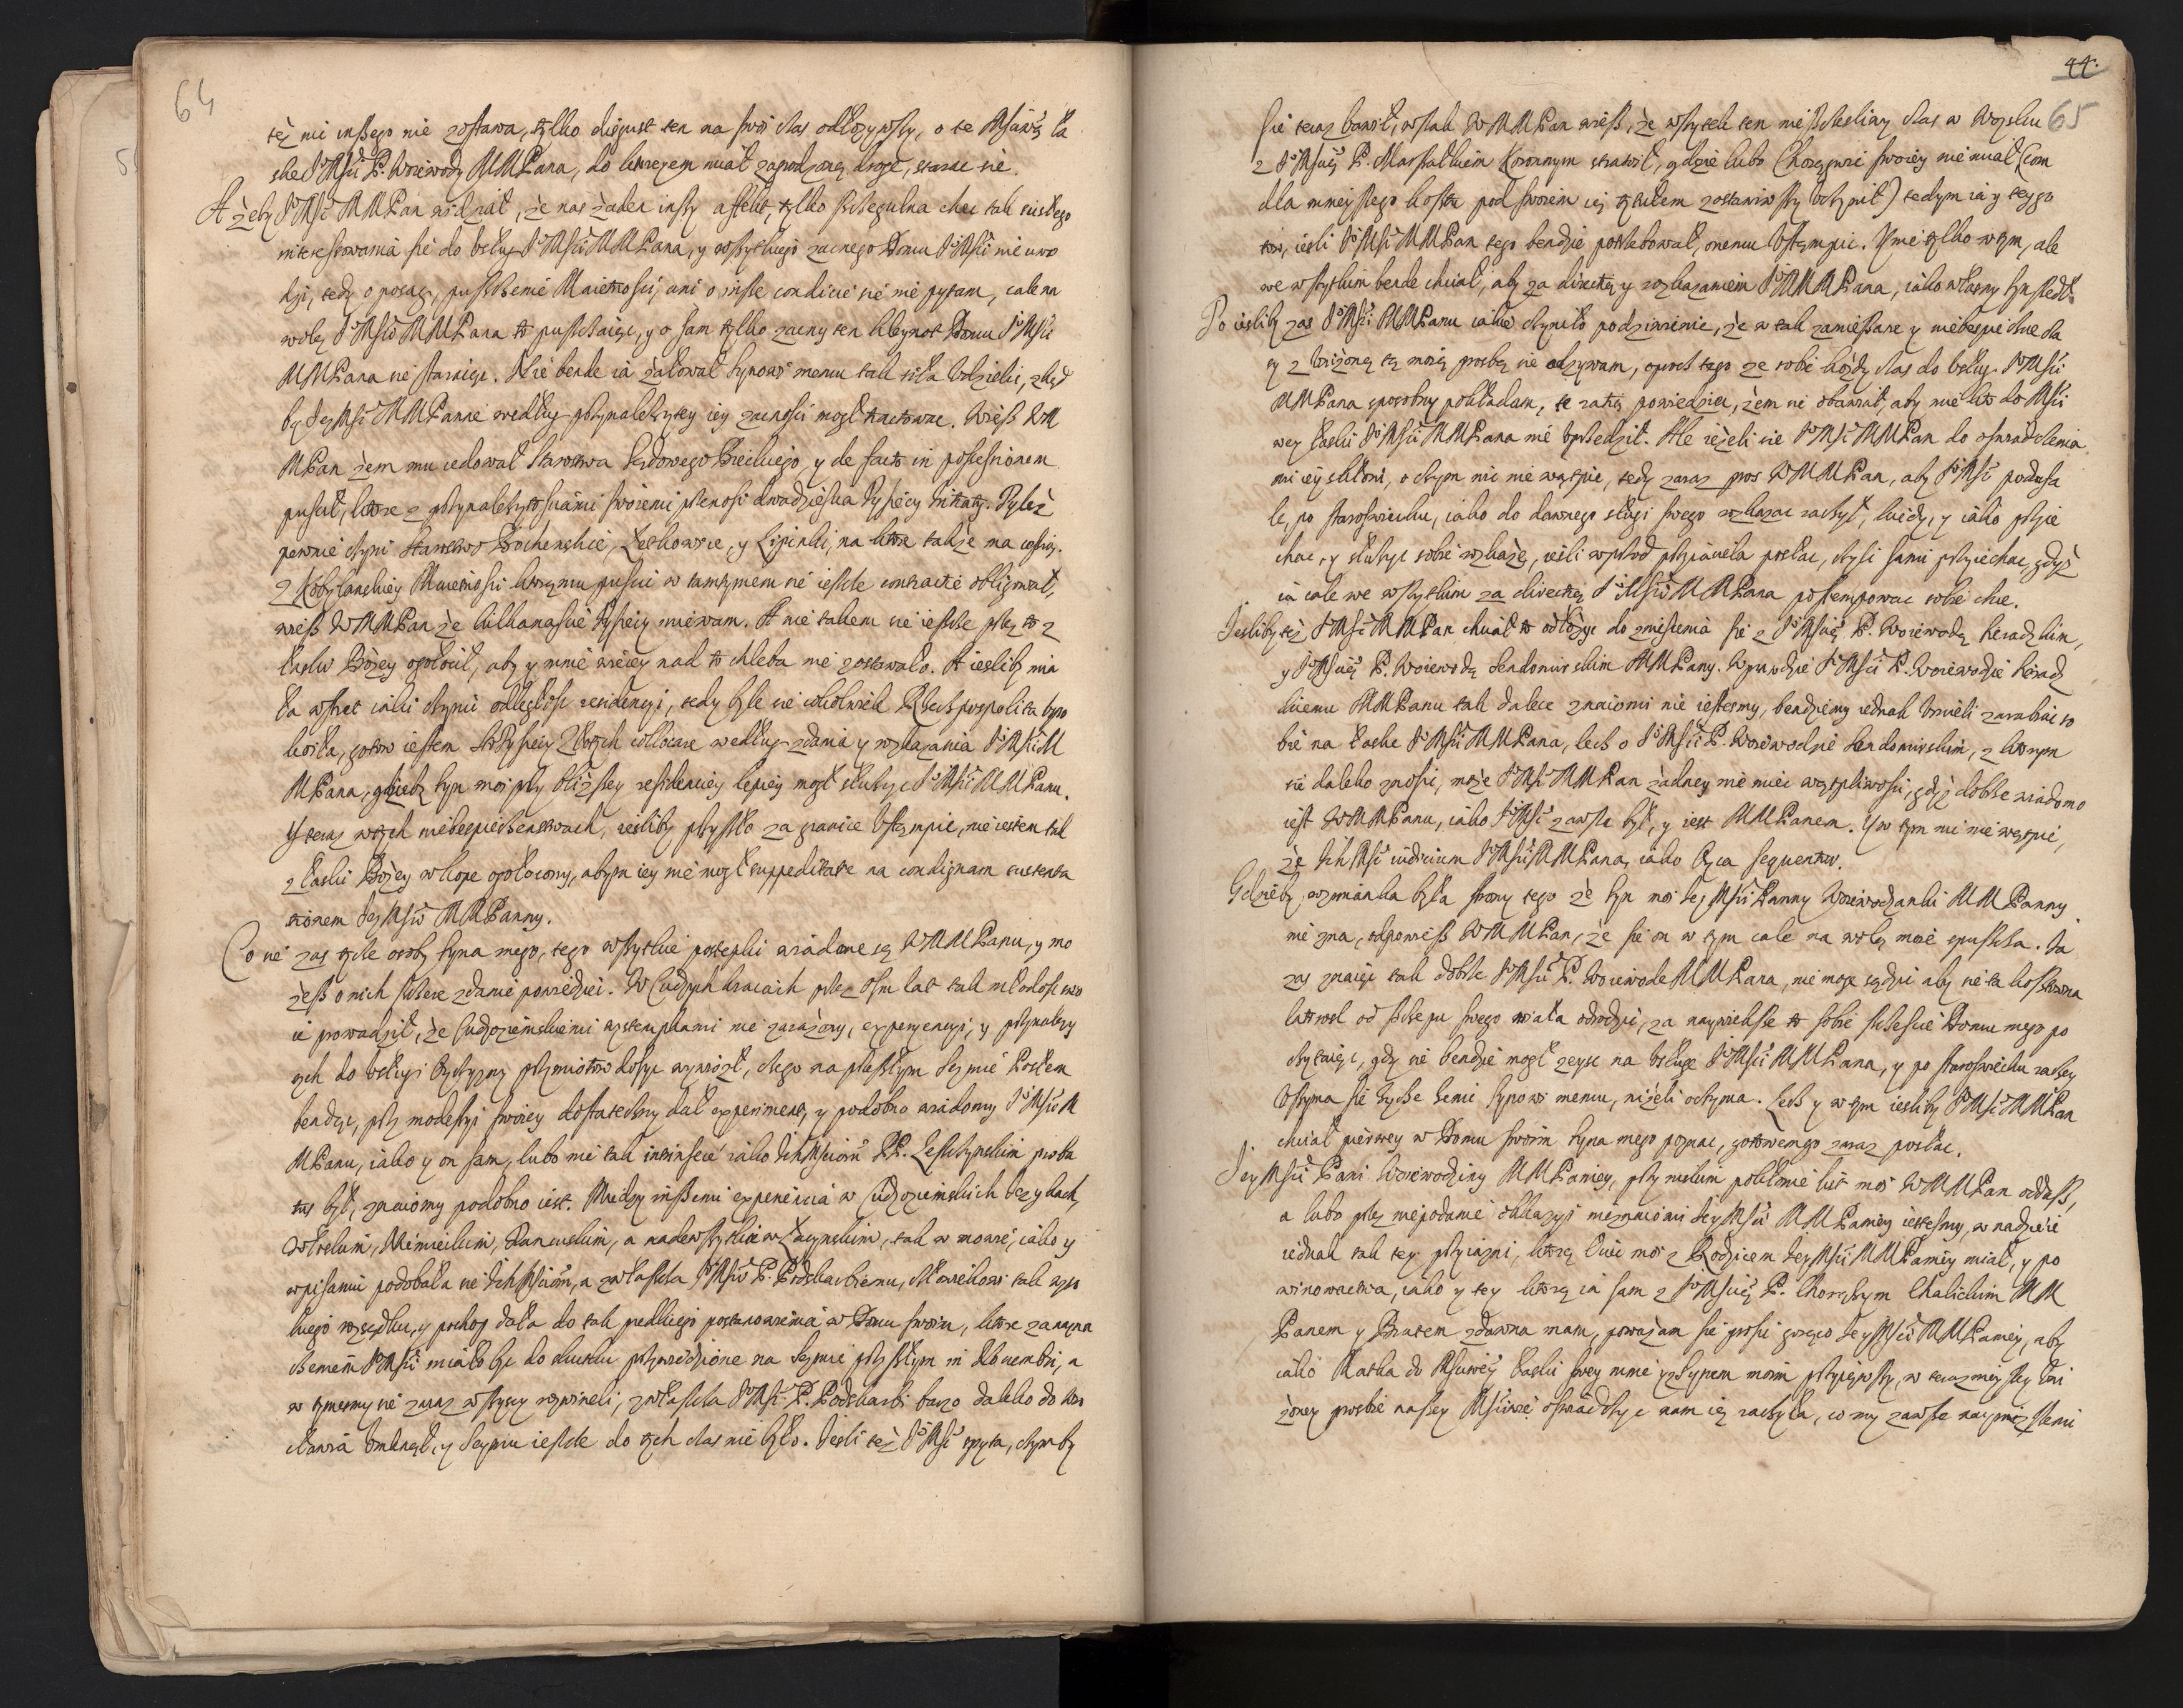 64
też mi inszego nie zostawa, tylko disgust ten na swoi czas odłozywszy, o te Msciwą ła
skę JoMsci P. Woiewody MMPana, do ktoregem miał zagrodzoną drogę, starac sie.
A żeby JoMsc MMPan widział, że nas żaden inszy affekt, tylko szczegulna chec tak scisłego
interessowania sie do usług JoMsci MMPana, y wszystkiego zacnego Domu JoMsci nie uwo
dzi, tedy o posag, puszczenie Maietnosci, ani o insze conditie sie nie pytam, cale na
wolą JoMsci MMPana to puszczaiąc, y o sam tylko zacny ten kleynot Domu JoMsci
MMPana sie staraiąc. Nie bende ia żałował synowi memu tak siła udzielic, zkąd
by JeyMsc MMPannę według przynalezytey iey zacnosci mogł tractowac. Wiesz WM
MPan żem mu cedował Starostwa Sądowego Bieckiego, y de facto in possessionem
puscił, ktore z przynalezytosciami swoiemi przenosi dwadziescia tysięcy intraty. Tylez
pewnie czyni Starostwo Bochenskie, y Lipinki, na ktore także ma
z Kobylanskiey Maietnosci ktorąmu puscic w tamtymem sie ieszcze contractie obligował,
wiesz WMMPan że kilkanascie tysięcy miewam. A nie takem sie ieszcze przez to z
łaski Bożey ogołocił, aby y mnie wiecey nad to chleba nie zostawało. A iesliby mia
ła wstręt iaki czynic odległosc residencyi, tedy byle sie cokolwiek Rzeczpospolita uspo
koiła, gotow iestem Sto Tysięcy Złotych collocare według zdania y rozkazania JoMsci M
MPana, gdzieby syn moi przy bliższey residenciey lepiey mogł służyc JoMsci MMPanu.
Y teraz wtych niebespieczenstwach, iesliby przyszło za granice Ustąmpic, nie iestem tak
z łaski Bożey wkope ogołocony, abym iey nie mogł suppeditare na condignam sustenta
tionem JeyMsci MMPanny.
Co sie zas tycze osoby syna mego, tego wszystkie postepki wiadome są WMMPanu, y mo
żesz o nich szczere zdanie powiedziec. W Cudzych kraiach przez osm lat tak młodosc swo
ię prowadził, że Cudzoziemskiemi wystempkami nie zarażony, experyencyi, y przynalezy
tych do usługi Oyczyzny przymiotow dosyc wywiozł, czego na przeszłym Seymie Posłem
bendąc, przy modestyi swoiey dostateczny dał experiment, y podobno wiadomy JoMsci M
MPanu, iako y on sam, lubo nie tak intrinsece iako IchMsciom PP. Leszczynskim proba
tus był, znaiomy podobno iest. Miedzy inszemi experiencia w Cudzoziemskich Jezykach,
Włoskim, Niemieckim, Francuskim, a nadewszystkie w Łacynskim, tak w mowie, iako y
w pisaniu podobała sie IchMsciom, a zwłaszcza JoMsci P. Podskarbiemu, człowiekowi tak wyso
kiego rozsądku, y pochop dała do tak predkiego postanowienia w Domu swoim, ktore za
JoMsci miało byc do skutku przywiedzione na Seymie przyszłym in Xbvembri, a
w tymesmy sie zaraz wszyscy rozmineli, zwłaszcza JoMsc P. Podskarbi barzo daleko do
Seymu ieszcze do tych czas nie było. Jesli też JoMsc spyta, czymby

44.
65
sie teraz bawił, wszak WMMPan wiesz, że wszystek ten nieszczesliwy czas w Woysku
z JoMscią P. Marszałkiem Koronnym strawił, gdzie lubo Chorągwie swoiey nie miał (com
dla mnieyszego kosztu pod swoiem ią tytułem zostawiwszy uczynił) tedym ia y teygo
iesli JoMsc MMPan tego bendzie potrzebował, onemu Ustąmpic. Y nie tylko w tym, ale
we wszystkim bende chciał, aby za directią y rozkazaniem JoMMPana, iako własny syn szedł.
Po iesliby zas JoMsci MMPanu iakie czyniło podziwienie, że w tak zamieszane y niebespieczne cza
sy z uniżoną tą moią prosbą sie odzywam, oprocz tego że sobie każdy czas do usług JoMsci
MMPana sposobny pokładam, te ratią powiedziec, żem sie obawiał, aby mie kto do Msci
wey łaski JoMsci MMPana nie uprzedził. Ale ieżeli sie JoMsc MMPan do oswiadczenia
mi iey skłoni, o czym nic nie wątpie, tedy zaraz pros WMMPan, aby JoMsc poduffa
le, po staroswiecku, iako do dawnego sługi swego rozkazac raczył, kiedy, y iako przyie
chac, y służyc sobie rozkażą, iesli wprzod przyiaciela posłac, czyli sami przyiechac, gdyż
ia cale we wszystkim za directią JoMsci MMPana postempowac sobie chce.
Iesliby też JoMsc MMPan chciał to odłożyc do zniesienia sie z JoMscią P. Woiewodą Sieradzkim,
y JoMscią P. Woiewodą Sendomirskim MMPany. Wprawdzie JoMsci P. Woiewodzie Sieradz
kiemu MMPanu tak dalece znaiomi nie iestesmy, bendziemy iednak umieli zarabiac so
bie na łaske JoMsci MMPana, lecz o JoMsci P. Woiewodzie Sendomirskim, z ktorym
sie daleko znosic, może JoMsc MMPan żadney nie miec wątpliwosci, gdyż dobrze wiadomo
iest WMMPanu, iako JoMsc zawsze był, y iest MMPanem. Y w tym nic nie wątpie,
że IchMsc iudicium JoMsci MMPana, iako Oyca sequentur.
Gdzieby wzmianka była strony tego że syn moi JeyMsci Panny Woiewodzanki MMPanny
nie zna, odpowiesz WMMPan, że sie on w tym cale na wolą moię spuszcza. Ja
zas znaiąc tak dobrze JoMsci P. Woiewode MMPana, nie moge sądzic aby sie ta kosztowna
latorosl od szczepu swego miała odrodzic, za naywieksze to sobie szczescie Domu mego po
czytaiąc, gdy sie bendzie mogł zeysc na usługę JoMsci MMPana, y po staroswiecku raczey
Uszyma sie życze żenic synowi memu, niżeli oczyma. Lecz y w tym iesliby JoMsc MMPan
chciał pierwey w Domu swoim syna mego poznac, gotowemgo zaraz posłac.
JeyMsci Pani Woiewodziny MMPaniey, przy niskim pokłonie list moi WMMPan oddasz,
a lubo przez niepodanie okkazyi nieznaiomi JeyMsci MMPaniey iestesmy, w nadzieię
iednak tak tey przyiazni, ktorą Ociec moi z Rodzicem JeyMsci MMPaniey miał, y po
winowactwa, iako y tey ktorą ia sam z JoMscią P. Chorążym Chalickim MM
Panem y Bratem zdawna mam, poważam sie prosic gorąco JeyMsci MMPaniey, aby
iako Matka do Msciwey łaski swey mnie y z synem moim przyiąwszy, w teraznieyszey uni
żoney prosbie naszey Msciwie oswiadczyc nam ią raczyła, co my zawsze